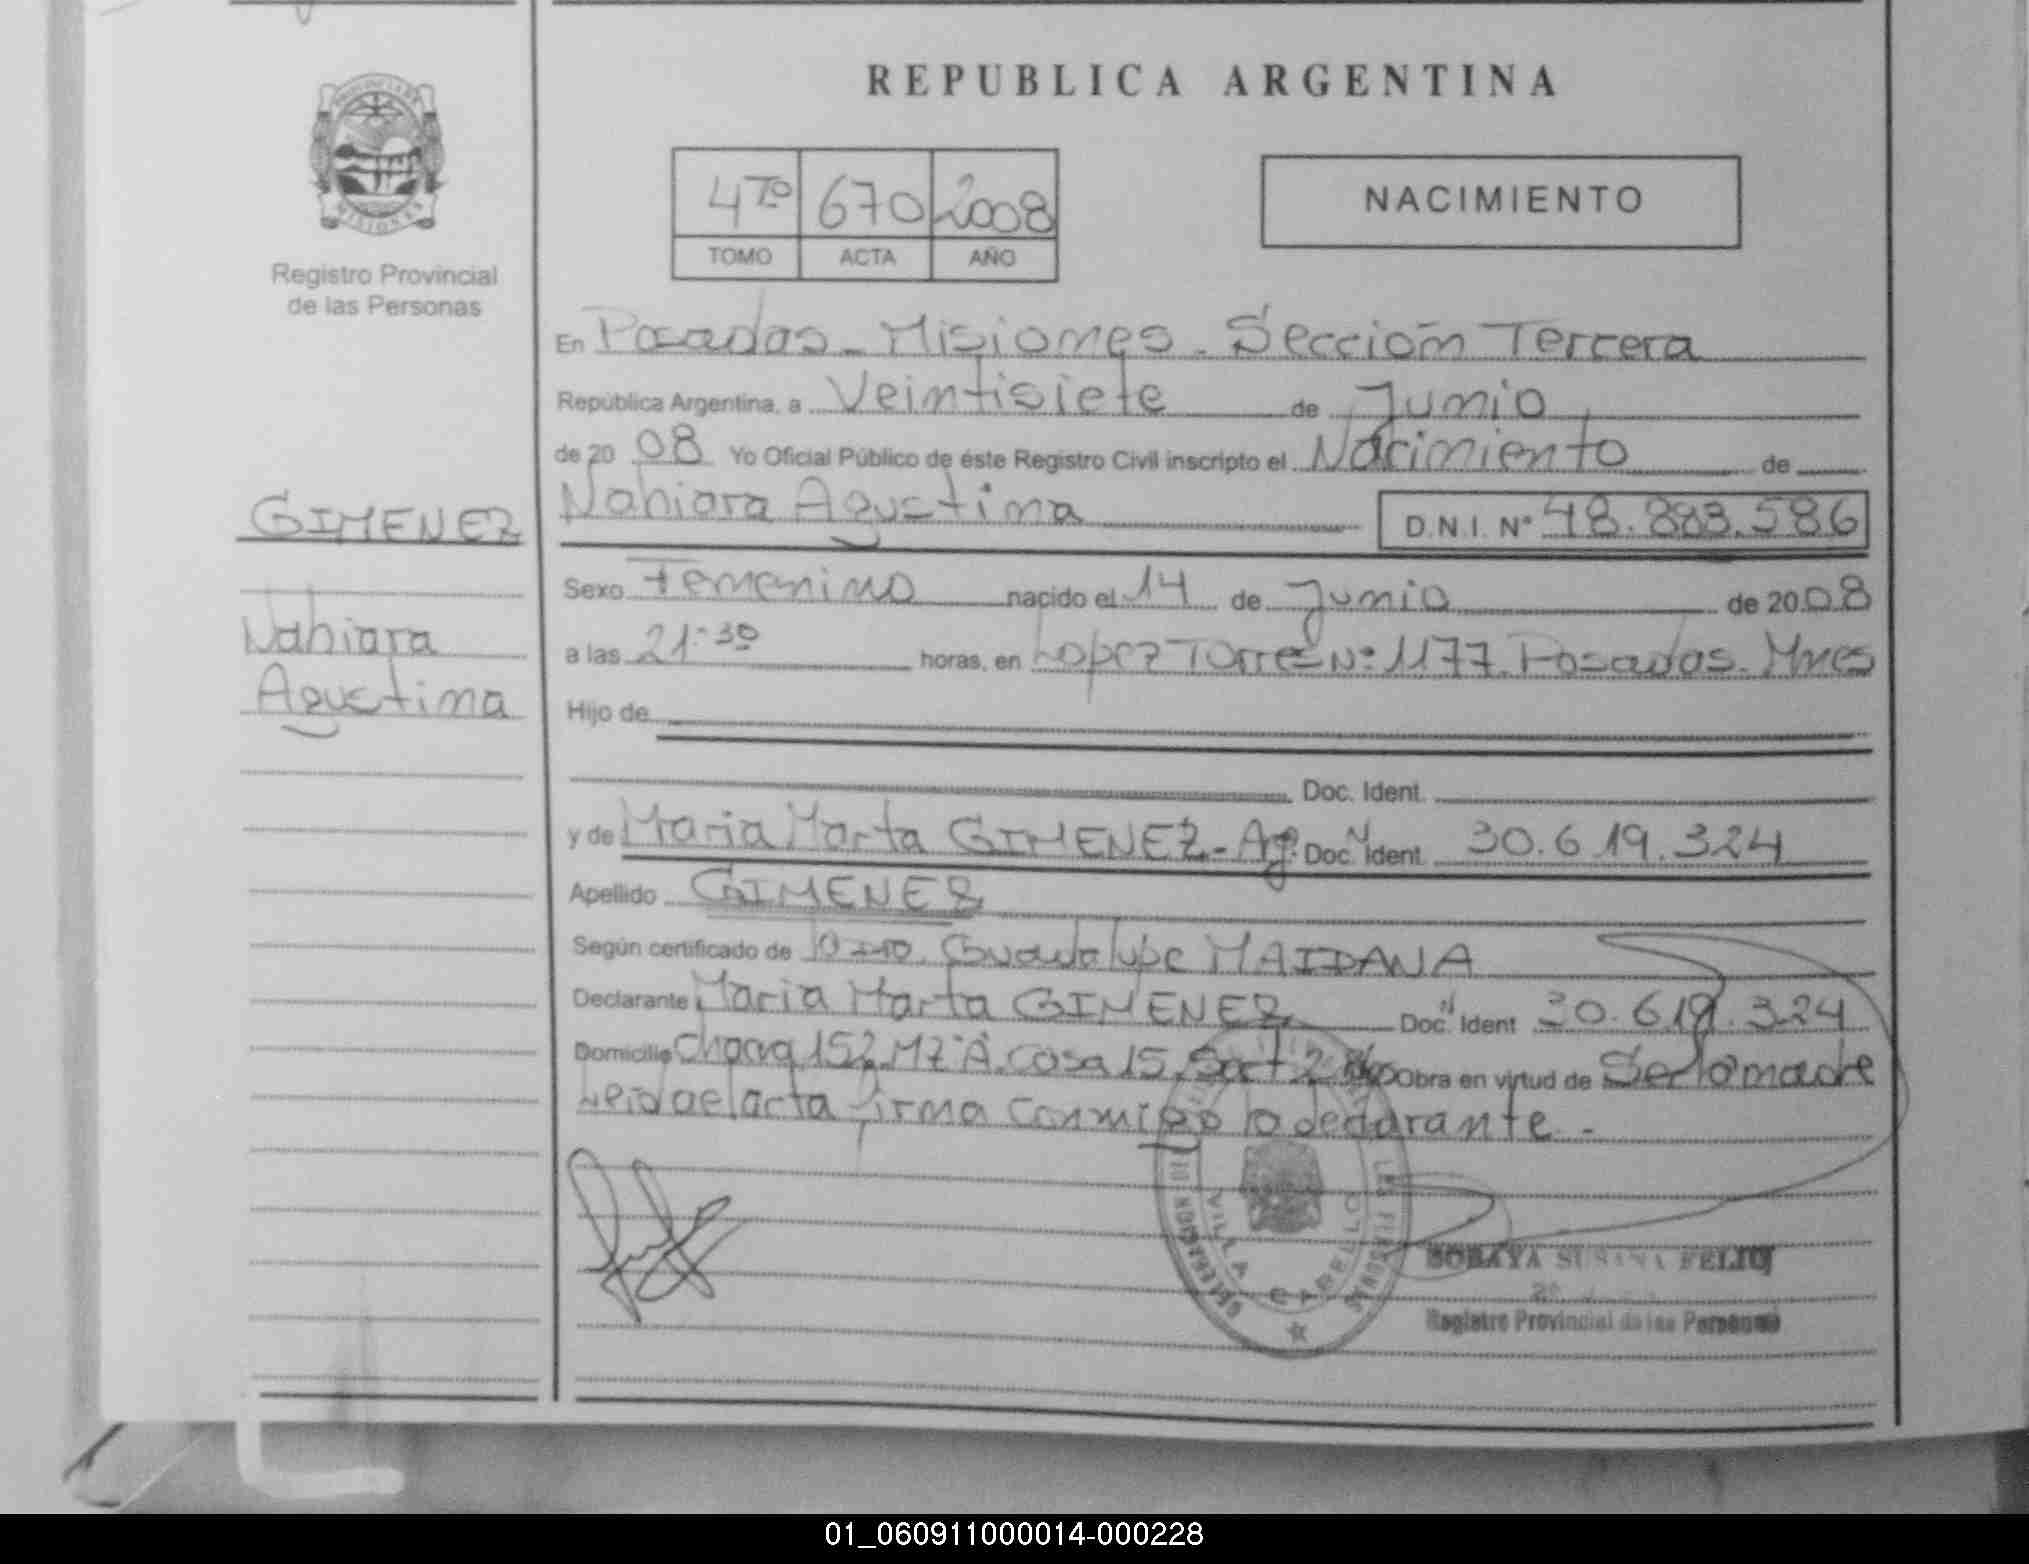 REPUBLICA ARGENTINA
PROVINCIA DE
MISIONES
Registro Provincial
de las Personas
4TO 670 2008
TOMO ACTA AÑO
NACIMIENTO
En Posadas - Misiones - Sección Tercera
República Argentina, a Veintisiete de Junio
de 2008 Yo Oficial Público de éste Registro Civil inscripto el Nacimiento de
GIMENEZ
Nahiara Agustina D.N.I. Nº 48.883.586
Sexo Femenino nacido el 14 de Junio de 2008
Nahiara
Agustina
a las 21:30 horas, en Lopez Torres Nº 1177. Posadas - Mnes
Hijo de
Doc. Ident.
y de Maria Marta GIMENEZ - Ag. Doc. Ident. 30.619.324
Apellido GIMENEZ
Según certificado de Guadalupe MAIDANA
Declarante Maria Marta GIMENEZ Doc. Ident 30.619.324
Domicilio Chacra 152 Mz A. Casa 15, Obra en virtud de Ser la madre
Leida el acta firma conmigo la declarante.-
DELEGACION VILLA CABELLO
LAS PERSONAS
SORAYA SUSANA FELTOJ
Registro Provincial de las Personas
01_060911000014-000228